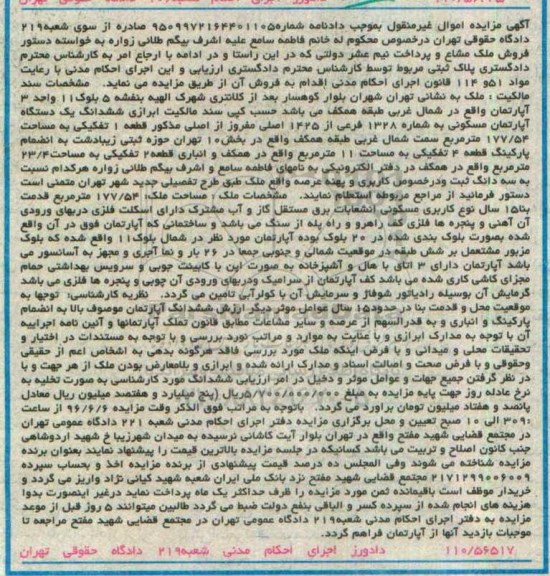 آگهی مزایده اموال غیرمنقول بموجب دادنامه شماره ۹۵۰۹۹۷۲۱۶۴۴۰۱۱۰۵ صادره از سوی شعبه ۲۱۹
دادگاه حقوقی تهران درخصوص محکوم له خانم فاطمه سامع علیه اشرف بیگم طلائی زواره به خواسته دستور
فروش ملک مشاع و پرداخت نیم عشر دولتی که در این راستا و در ادامه با ارجاع امر به کارشناس محترم
دادگستری پلاک ثبتی مربوط توسط کارشناس محترم دادگستری ارزیابی و این اجرای احکام مدنی با رعایت
مواد ۵۱و ۱۱۴ قانون اجرای احکام مدنی اقدام به فروش آن از طریق مزایده می نماید. مشخصات سند
مالکیت : ملک به نشانی تهران شهران بلوار کوهسار بعد از کلانتری شهرک الهیه بنفشه ۵ بلوک۱۱ واحد ۳
آپارتمان واقع در شمال غربی طبقه همکف می باشد حسب کپی سند مالکیت ابرازی ششدانگ یک دستگاه
آپارتمان مسکونی به شماره ۱۳۲۸ فرعی از ۱۴۲۵ اصلی مفروز از اصلی مذکور قطعه ۱ تفکیکی به مساحت
۱۷۷/۵۴ مترمربع سمت شمال غربی طبقه همکف واقع در بخش۱۰ تهران حوزه ثبتی زیبادشت به انضمام
پارکینگ قطعه ۴ تفکیکی به مساحت ۱۱ مترمربع واقع در همکف و انباری قطعه۲ تفکیکی به مساحت۲۳/۴
مترمربع واقع در همکف در دفتر الکترونیکی به نامهای فاطمه سامع و اشرف بیگم طلائی زواره هرکدام نسبت
به سه دانگ ثبت ودرخصوص کاربری و پهنه عرصه واقع ملک طبق طرح تفصیلی جدید شهر تهران متمنی است
دستور فرمائید از مراجع مربوطه استعلام نمایند. مشخصات ملک : مساحت ملک: ۱۷۷/۵۴ مترمربع قدمت
بنا۱۵ سال نوع کاربری مسکونی انشعابات برق مستقل گاز و آب مشترک دارای اسکلت فلزی دربهای ورودی
آن آهنی و پنجره ها فلزی کف راهرو و راه پله از سنگ می باشد و ساختمانی که آپارتمان فوق در آن واقع
شده بصورت بلوک بندی شده در ۲۰ بلوک بوده آپارتمان مورد نظر در شمال بلوک۱۱ واقع شده که بلوک
مزبور مشتمل بر شش طبقه در موقعیت شمالی و جنوبی جمعا در ۲۶ بار و نما آجری و مجهز به آسانسور می
باشد آپارتمان دارای ۳ اتاق با هال و آشپزخانه به صورت اپن با کابینت چوبی و سرویس بهداشتی حمام
مجزای کاشی کاری شده می باشد کف آپارتمان از سرامیک ودربهای ورودی آن چوبی و پنجره ها فلزی می باشد
گرمایش آن بوسیله رادیاتور شوفاژ و سرمایش آن با کولرآبی تامین می گردد. نظریه کارشناسی: توجها به
موقعیت محل و قدمت بنا در حدود۱۵ سال عوامل موثر دیگر ارزش ششدانگ آپارتمان موصوف بالا به انضمام
پارکینگ و انباری و به قدرالسهم از عرصه و سایر مشاعات مطابق قانون تملک آپارتمانها و آئین نامه اجراییه
آن با توجه به مدارک ابرازی و با عنایت به موارد و مراتب مورد بررسی و با توجه به مستندات در اختیار و
تحقیقات محلی و میدانی و با فرض اینکه ملک مورد بررسی فاقد هرگونه بدهی به اشخاص اعم از حقیقی
وحقوقی و با فرض صحت و اصالت اسناد و مدارک ارائه شده و ابرازی و بلامعارض بودن ملک از هر جهت و با
در نظر گرفتن جمیع جهات و عوامل موثر و دخیل در امر ارزیابی ششدانگ مورد کارشناسی به صورت تخلیه به
نرخ عادله روز جهت پایه مزایده به مبلغ ریال (پنج میلیارد و هفتصد میلیون ریال معادل
پانصد و هفتاد میلیون تومان برآورد می گردد. باتوجه به مراتب فوق الذکر وقت مزایده ۹۶/۶/۶ از ساعت
۹:۳۰ الی ۱۰ صبح تعیین و محل برگزاری مزایده دفتر اجرای احکام مدنی شعبه ۲۲۱ دادگاه عمومی تهران
در مجتمع قضایی شهید مفتح واقع در تهران بلوار آیت کاشانی نرسیده به میدان شهرزیبا خ شهید اردوشاهی
جنب کانون اصلاح و تربیت می باشد کسانیکه در جلسه مزایده بالاترین قیمت را پیشنهاد نمایند بعنوان برنده
مزایده شناخته می شوند وفی المجلس ده درصد قیمت پیشنهادی از برنده مزایده اخذ و بحساب سپرده
۲۱۷۱۲۹۹۰۰۶۰۰۹ مجتمع قضایی شهید مفتح نزد بانک ملی ایران شعبه شهید کیانی نژاد واریز می گردد و
خریدار موظف است باقیمانده ثمن مورد مزایده را ظرف حداکثر یک ماه پرداخت نماید درغیر اینصورت بدوا
هزینه های انجام شده از سپرده کسر و الباقی بنفع دولت ضبط می گردد طالبین میتوانند ۵ روز قبل از موعد
مزایده به دفتر اجرای احکام مدنی شعبه۲۱۹ دادگاه عمومی تهران در مجتمع قضایی شهید مفتح مراجعه تا
موجبات بازدید آنها از آپارتمان فراهم گردد.
۱۱۰/۵۶۵۱۷ دادورز اجرای احکام مدنی شعبه۲۱۹ دادگاه حقوقی تهران